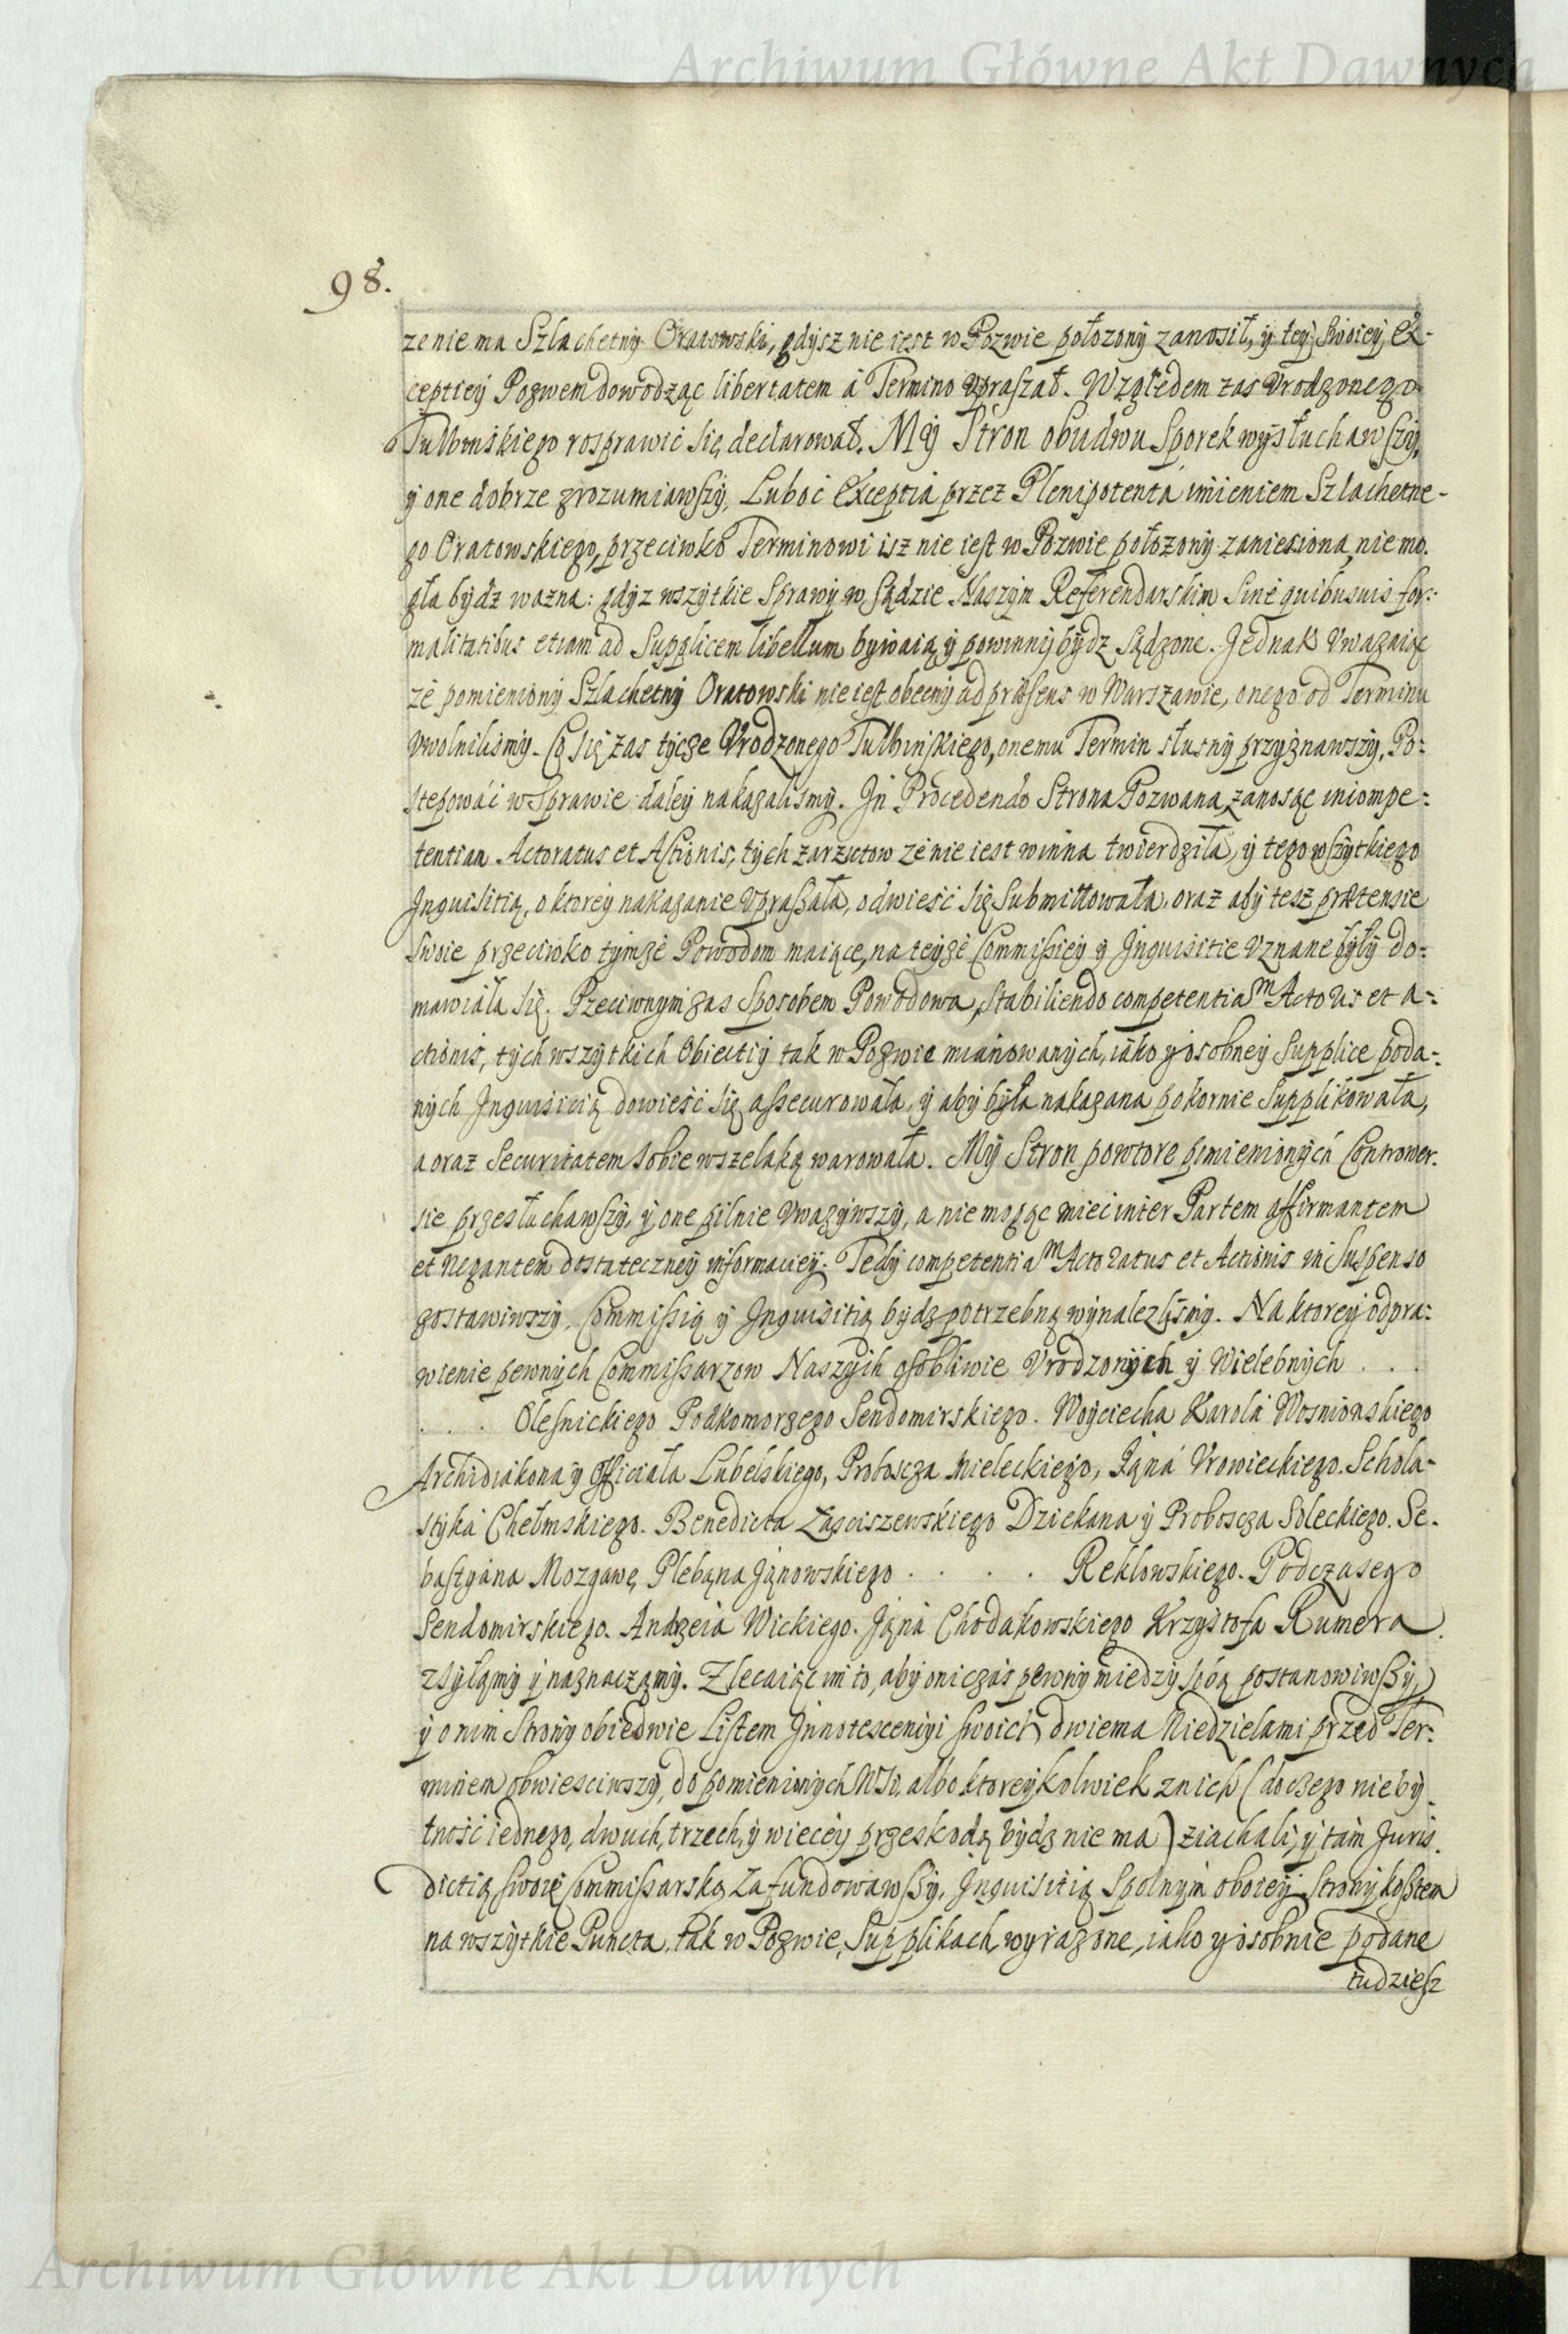 Archiwum Główne Akt Dawnych
98.
ze nie ma Szlachetny Oratowski, gdysz nie iest w Pozwie położony zanosił, y tey swoiey Ex-
ceptiey Pozwem dowodząc libertatem à Termino vpraszał. Względem zas Vrodzonego
Tulbinskiego rosprawić się declarował. My Stron obudwu Sporek wysłuchawszy,
y one dobrze zrozumiawszy, Luboć Exceptia przez Plenipotenta imieniem Szlachetne-
go Oratowskiego, przeciwko Terminowi isz nie iest w Pozwie położony zaniesiona, nie mo-
gła bydź ważna: gdyż wszytkie Sprawy w Sądzie Naszym Referendarskim Sine quibusuis for-
malitatibus etiam ad Supplicem libellum bywaią y powinny bydz Sądzone. Jednak Vwazaiąc
że pomieniony Szlachetny Oratowski nie iest obecny ad præsens w Warszawie, onego od Terminu
Vwolnilismy. Co się zas tycze Vrodzonego Tulbinskiego, onemu Termin słusny przyznawszy, Po-
stępować w Sprawie daley nakazalismy. In Procedendo Strona Pozwana zanosąc incompe-
tentian Actoratus et Actionis, tych zarzutow że nie iest winna twierdziła, y tego wszytkiego
Inquisitią, o ktorey nakazanie Vpraszała, odwieść się Submittowała, oraz aby tesz prætensie
Swoie przeciwko tymże Powodom maiące, na teyże Commissiey y Inquisitie Vznane były do-
mawiała się. Przeciwnym zas Sposobem Powodowa, Stabiliendo competentiam Actoratus et A-
ctionis, tych wszytkich Obiectiy tak w Pozwie mianowanych, iako y osobney Supplice poda-
nych Inquisitią dowieść się assecurowała, y aby była nakazana pokornie Supplikowała,
a oraz Securitatem sobie wszelaką warowała. My Stron powtore pomienionych Contrower-
sie przesłuchawszy, y one pilnie Vwazywszy, a nie mogąc mieć inter Partem affirmantem
et negantem dostateczney informaciey: Tedy competentiam Actoratus et Actionis in Suspenso
zostawiwszy, Commissią y Inquisitią bydz potrzebną wynalezlismy. Na ktorey odpra-
wienie pewnych Commissarzow Naszych osobliwie Vrodzonych y Wielebnych . . .
. . . Olesnickiego Podkomorzego Sendomirskiego. Woyciecha Karola Wosnionskiego
Archidiakona y Officiała Lubelskiego, Proboscza Mieleckiego, Jąna Vrowieckiego. Schola-
styka Chełmskiego. Benedicta Zasciszewskiego Dziekana y Proboscza Soleckiego. Se-
bastyana Mozgawę Plebąna Jąnowskiego . . . . Reklowskiego. Podczasego
Sendomirskiego. Andrzeia Wickiego. Jąna Chodakowskiego Krzystofa Rumera
zsyłąmy y naznaczamy. Zlecaiąc im to, aby oni czas pewny miedzy sobą postanowiwszy,
y o nim Strony obiedwie Listem Innotescentiyi swoich dwiema Niedzielami przed Ter-
minem obwiesciwszy, do pomienionych Wsi, albo ktoreykolwiek z nich (do czego nieby-
tność iednego, dwuch, trzech, y wiecey przeskodą bydz nie ma) ziachali, y tam Juris-
dictią swoię Commissarską Zafundowawszy, Inquisitią Spolnym oboiey strony kosztem
na wszytkie Puncta, tak w Pozwie, Supplikach wyrazone, iako y osobnie podane
tudziesz
Archiwum Główne Akt Dawnych